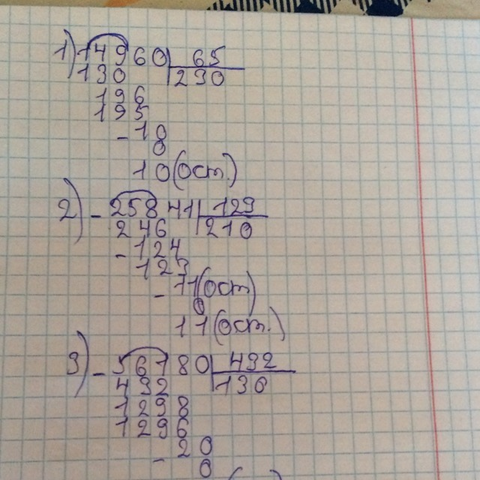 1) 14960 | 65
130 | 230
196
195
- 10
0
10 (ост.)
2) - 25841 | 123
246 | 210
- 124
123
- 11 (ост)
0
11 (ост.)
3) - 56180 | 432
432 | 130
1298
1296
- 20
0